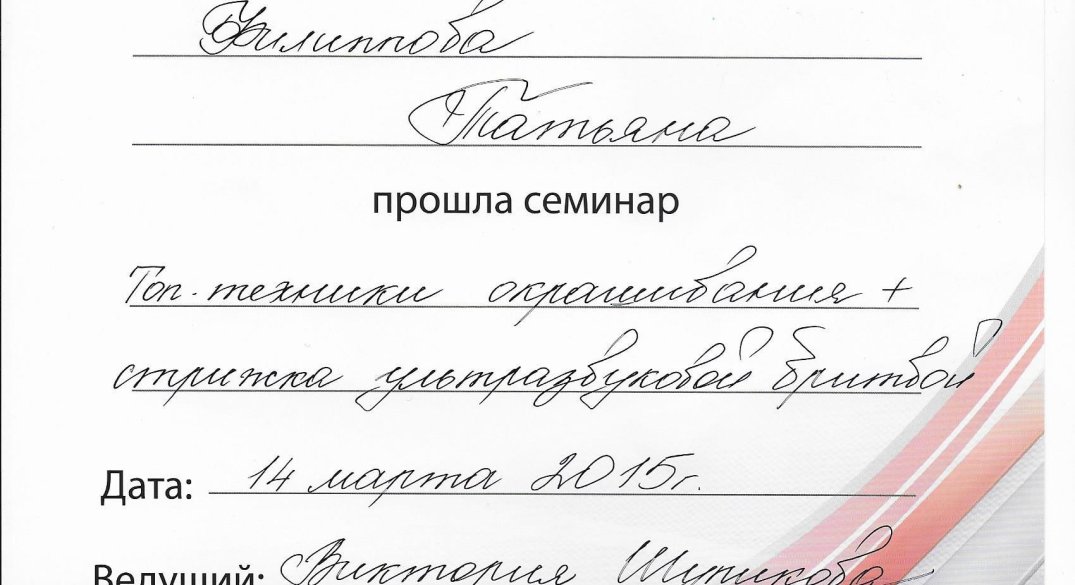 Филиппова
Татьяна
прошла семинар
Топ-техники окрашивания +
стрижка ультразвуковой бритвой
Дата: 14 марта 2015г.
Ведущий: Виктория Шупикова